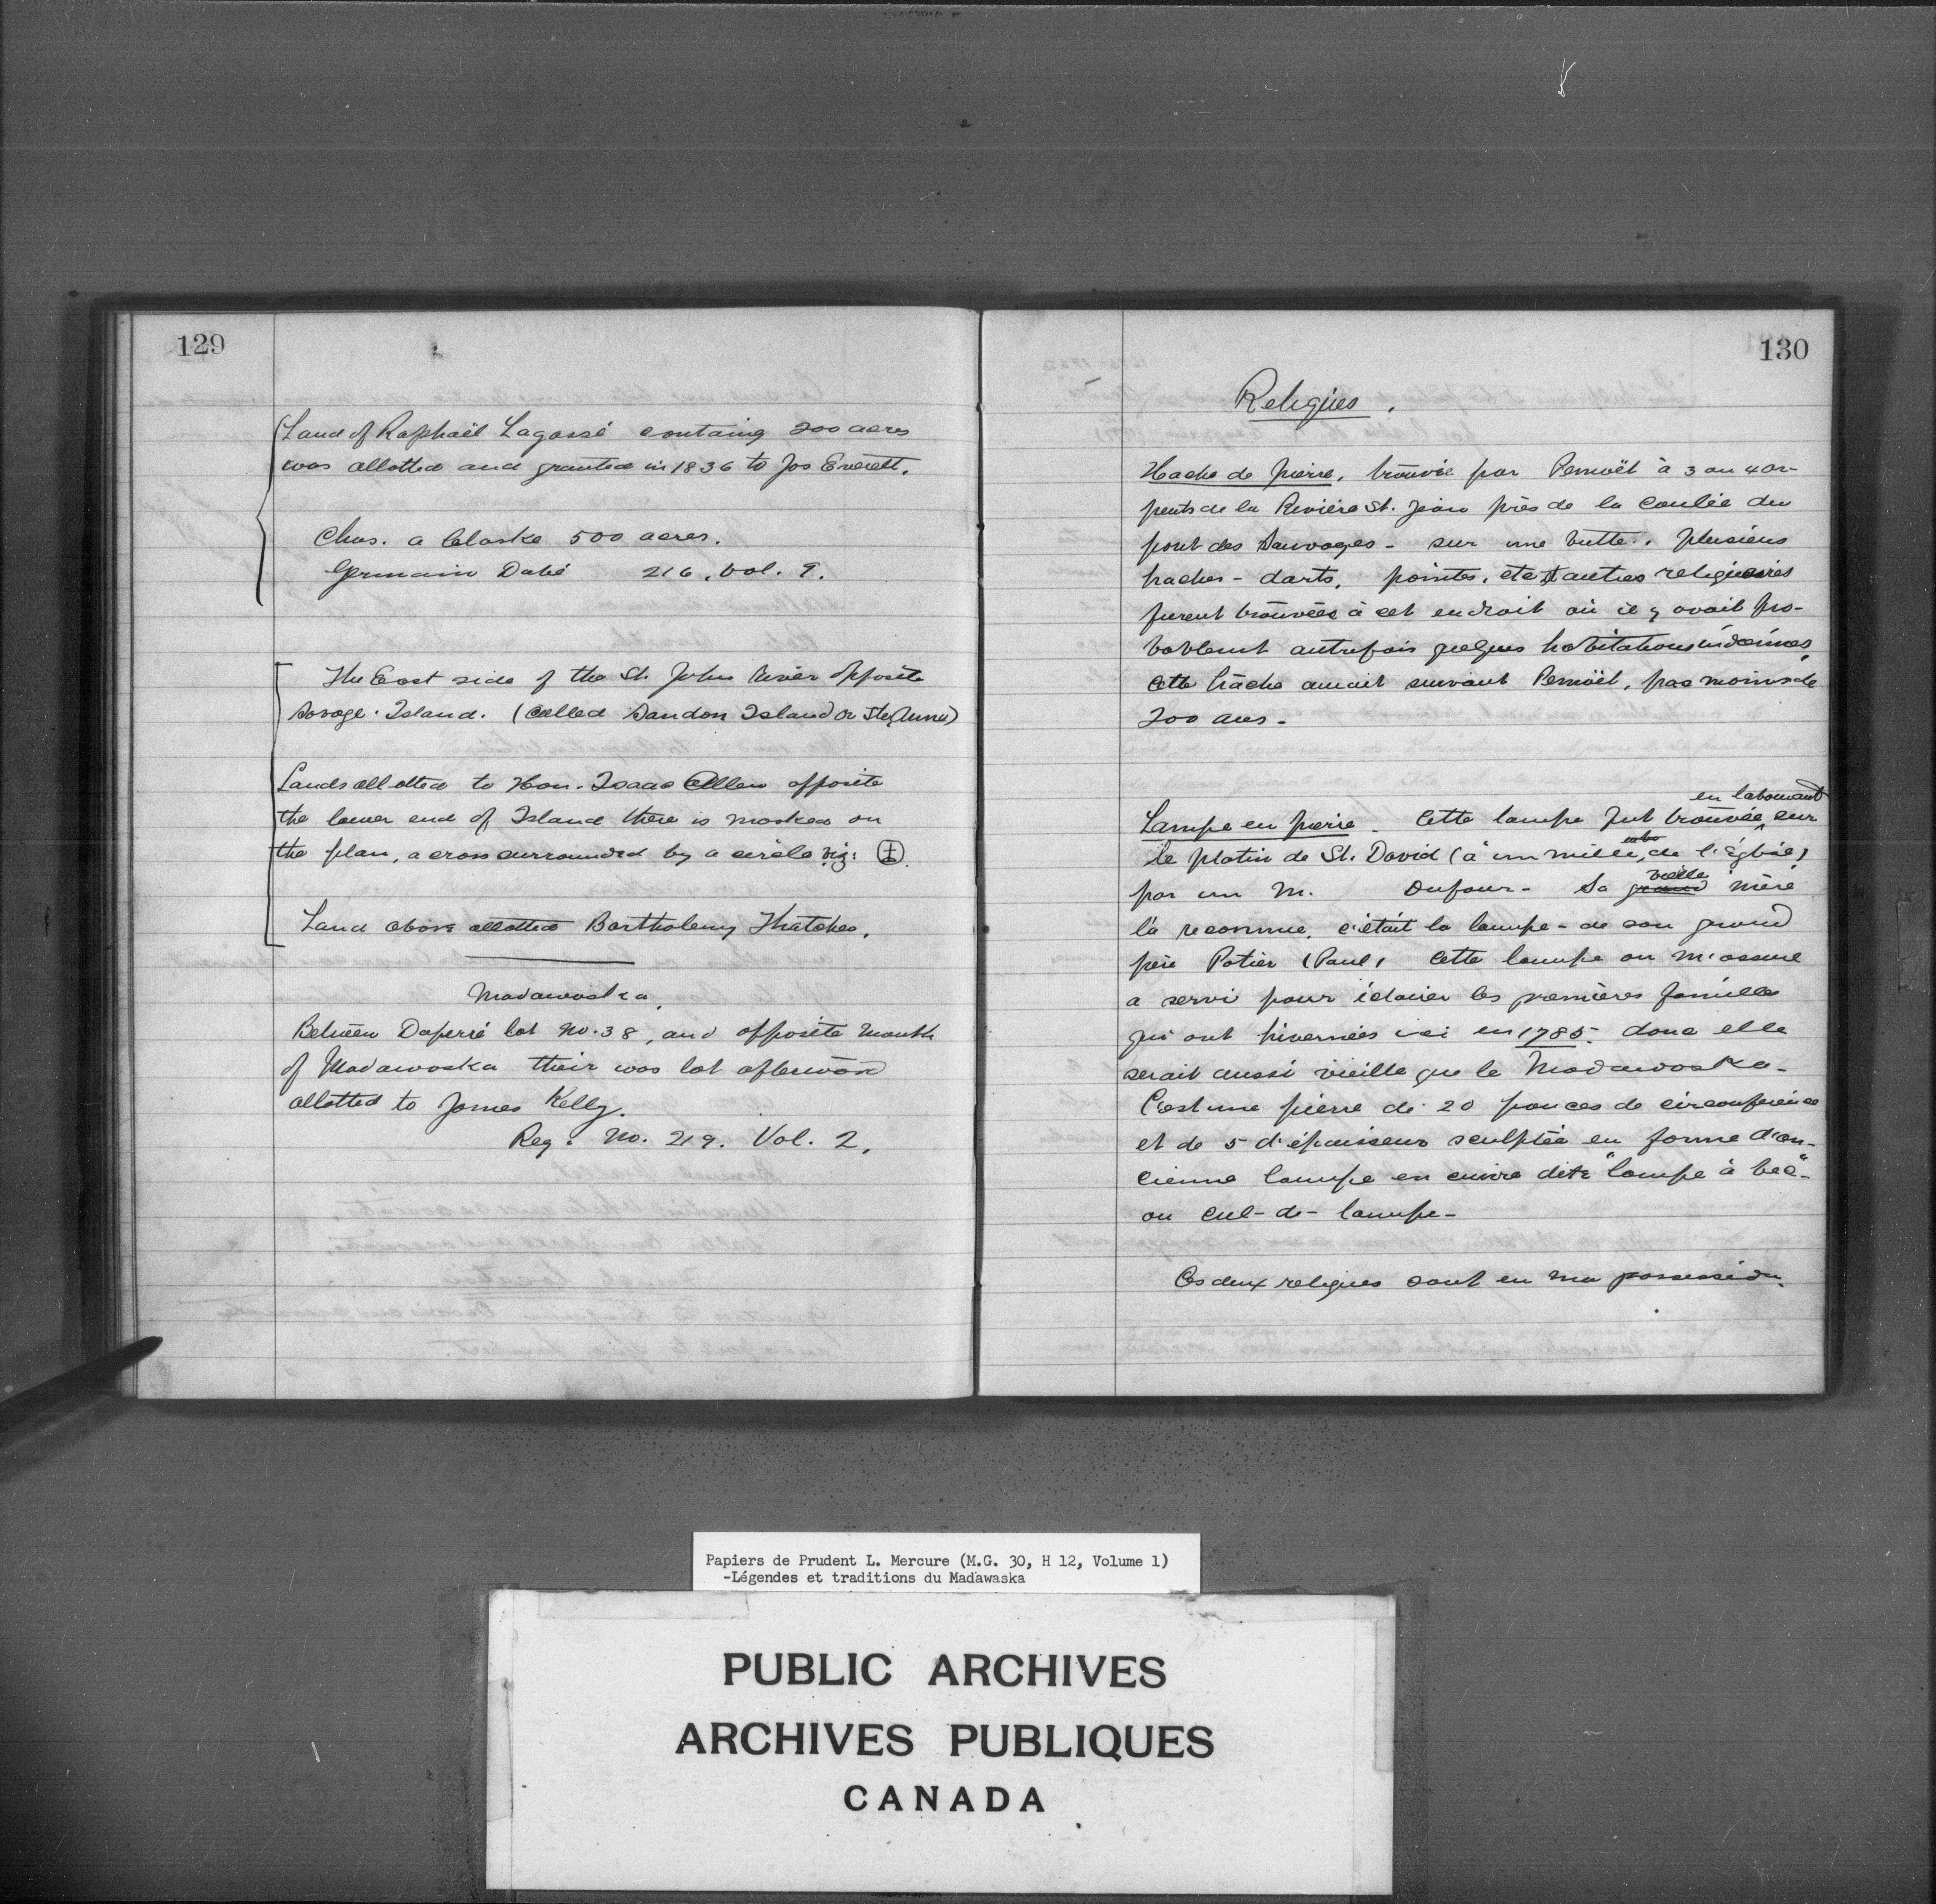 129
Land of Raphaël Lagassé containg 200 acres
was allotted and granted in 1836 to Jos Everett.
Chas. a Claske 500 acres.
Germain Dabé 216, vol. 9.
The East side of the St. John River opposite
Savage Island. (called Sandon Island or Ste Anne)
Lands allotted to Hon. Isaac Allen opposite
the lower end of Island there is marked on
the plan, a cross surrounded by a circle viz:
Land above allotted Bartholemy Thatcher.
Madawaska.
Between Duperré lot No. 38, and opposite mouth
of Madawaska their was lot afterward
allotted to James Kelly.
Reg. No. 219. Vol. 2.
130
Reliques.
Hache de pierre, trouvée par Pernoël à 3 ou 4 ar-
pents de la Rivière St. Jean près de la coulée du
pont des Sauvages - sur une butte. Plusieurs
haches - darts, pointes, etc autres
furent trouvées à cet endroit où il y avait pro-
bablemt autrefois quelques habitations indiennes
Cette hâche aurait suivant Pernoël, pas moins de
200 ans -
en labourant
Lampe en pierre - Cette lampe fut trouvée sur
le platin de St. David (à un mille de l'Église)
vieille
par un M. Dufour - Sa grand mère
l'a reconnue, c'était la lampe - de son grand
père Potier (Paul) Cette lampe on m'assure
a servi pour éclairer les premières familles
qui ont hivernées ici en 1785. donc elle
serait aussi vieille que le Madawaska -
C'est une pierre de 20 pouces de circonférence
et de 5 d'épaisseur sculptée en forme d'an-
cienne lampe en cuivre dite "lampe à bec" -
ou cul-de-lampe -
Ces deux reliques sont en ma possession.
Papiers de Prudent L. Mercure (M.G. 30, H 12, Volume 1)
-Légendes et traditions du Madawaska
PUBLIC ARCHIVES
ARCHIVES PUBLIQUES
CANADA